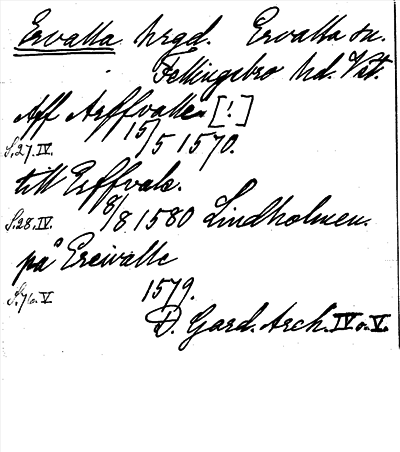 Ervalla hrgd. Ervalla sn.
Fellingsbro hd. Vst.
Aff Arffvalle [!]
S.27.IV. 15/5 1570.
till Erffvala.
S.28.IV. 8/8 1580 Lindholmen.
på Ereivalle
S.76.V 1579.
D. Gard. Arch. IV o. V.